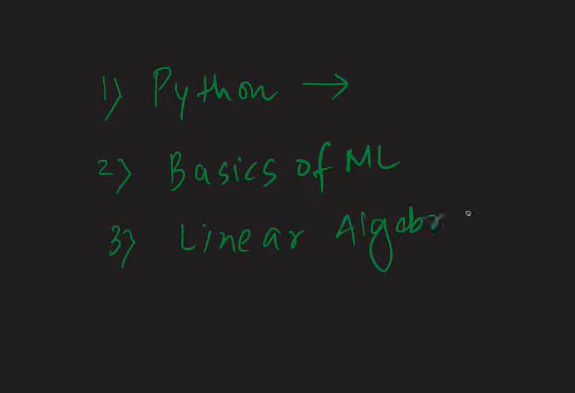 1) Python →
2) Basics of ML
3) Linear Algebr